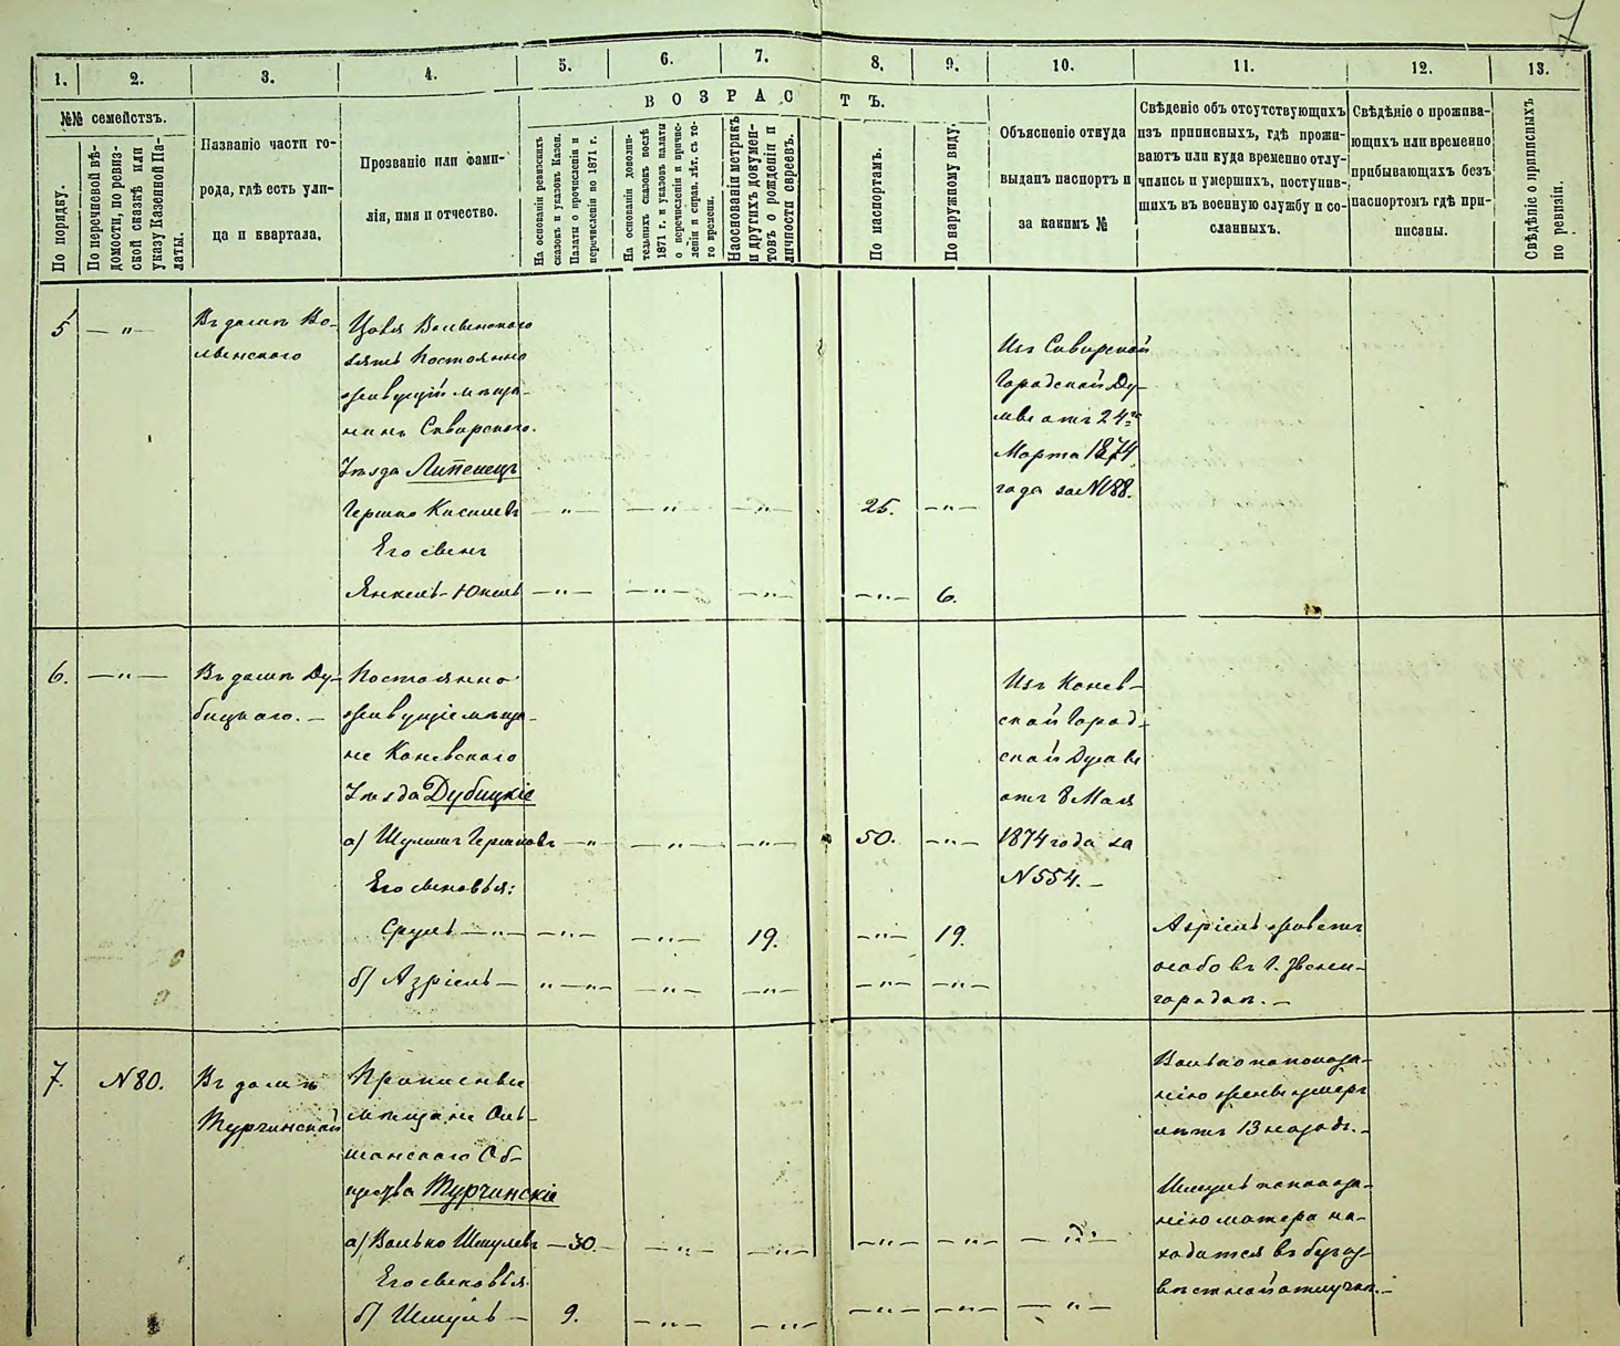 7
1. 2. 3. 4. 5. 6. 7. 8. 9. 10. 11. 12. 13.
В О З Р А С Т Ъ.
№№ семействъ.
По порядку.
По перечневой вѣ-
домости, по ревиз-
ской сказкѣ или
указу Казенной Па-
латы.
Названіе части го-
рода, гдѣ есть ули-
ца и квартала.
Прозваніе или фами-
лія, имя и отчество.
На основаніи ревизскихъ
сказокъ и указовъ Казен.
Палаты о причисленіи и
перечисленіи по 1871 г.
На основаніи дополни-
тельныхъ сказокъ послѣ
1871 г. и указовъ палаты
о перечисленіи и причис-
леніи и справ. лѣт. съ то-
го времени.
На основаніи метрикъ
и другихъ докумен-
товъ о рожденіи и
личности евреевъ.
По паспортамъ.
По наружному виду.
Объясненіе откуда
выданъ паспортъ и
за какимъ №
Свѣденіе объ отсутствующихъ
изъ приписныхъ, гдѣ прожи-
ваютъ или куда временно отлу-
чились и умершихъ, поступив-
шихъ въ военную службу и со-
сланныхъ.
Свѣдѣніе о прожива-
ющихъ или временно
прибывающихъ безъ
паспортомъ гдѣ при-
писаны.
Свѣдѣніе о приписныхъ
по ревизіи.
5 — „ —
Въ домѣ Во-
левенского
зять постоянно
живущій мѣща-
нинъ Сквирского
Уѣзда Липенецъ
Гершко — „ — — „ — — „ — 25. — „ —
Его сынъ
Янкель-Юкель — „ — — „ — — „ — — „ — 6.
Изъ Сквирской
Городской Ду-
мы отъ 24го
Марта 1874
года за N188.
6. — „ —
Въ домѣ Ду-
бицкаго. —
Постоянно
живущіе мѣща-
не Каневского
Уѣзда Дубицкіе
а) Шулимъ Гершковъ — „ — „ — — „ — 50. — „ —
Его сыновья:
Сруль — „ — — „ — — „ — 19. — „ — 19.
б) Азріель — „ — „ — — „ — — „ — — „ — — „ —
Изъ Канев-
ской Город-
ской Думы
отъ 8 Мая
1874 года за
N554. —
Азріель живетъ
особо въ г. Звени-
городкѣ. —
7. N80.
Въ домѣ
Турчинской
Приписные
мѣщане Оль-
шанского Об-
щества Турчинскіе
а) Волько Шмулевъ — 30. — — „ — — „ — — „ — — „ — — „ —
Его сыновья
б) Шмуль — 9. — „ — — „ — — „ — — „ — — „ —
Волько по показа-
нію жены умеръ
лѣтъ 13 назадъ. —
Шмуль по показа-
нію матери на-
ходится въ безъиз-
вѣстной отлучкѣ. —